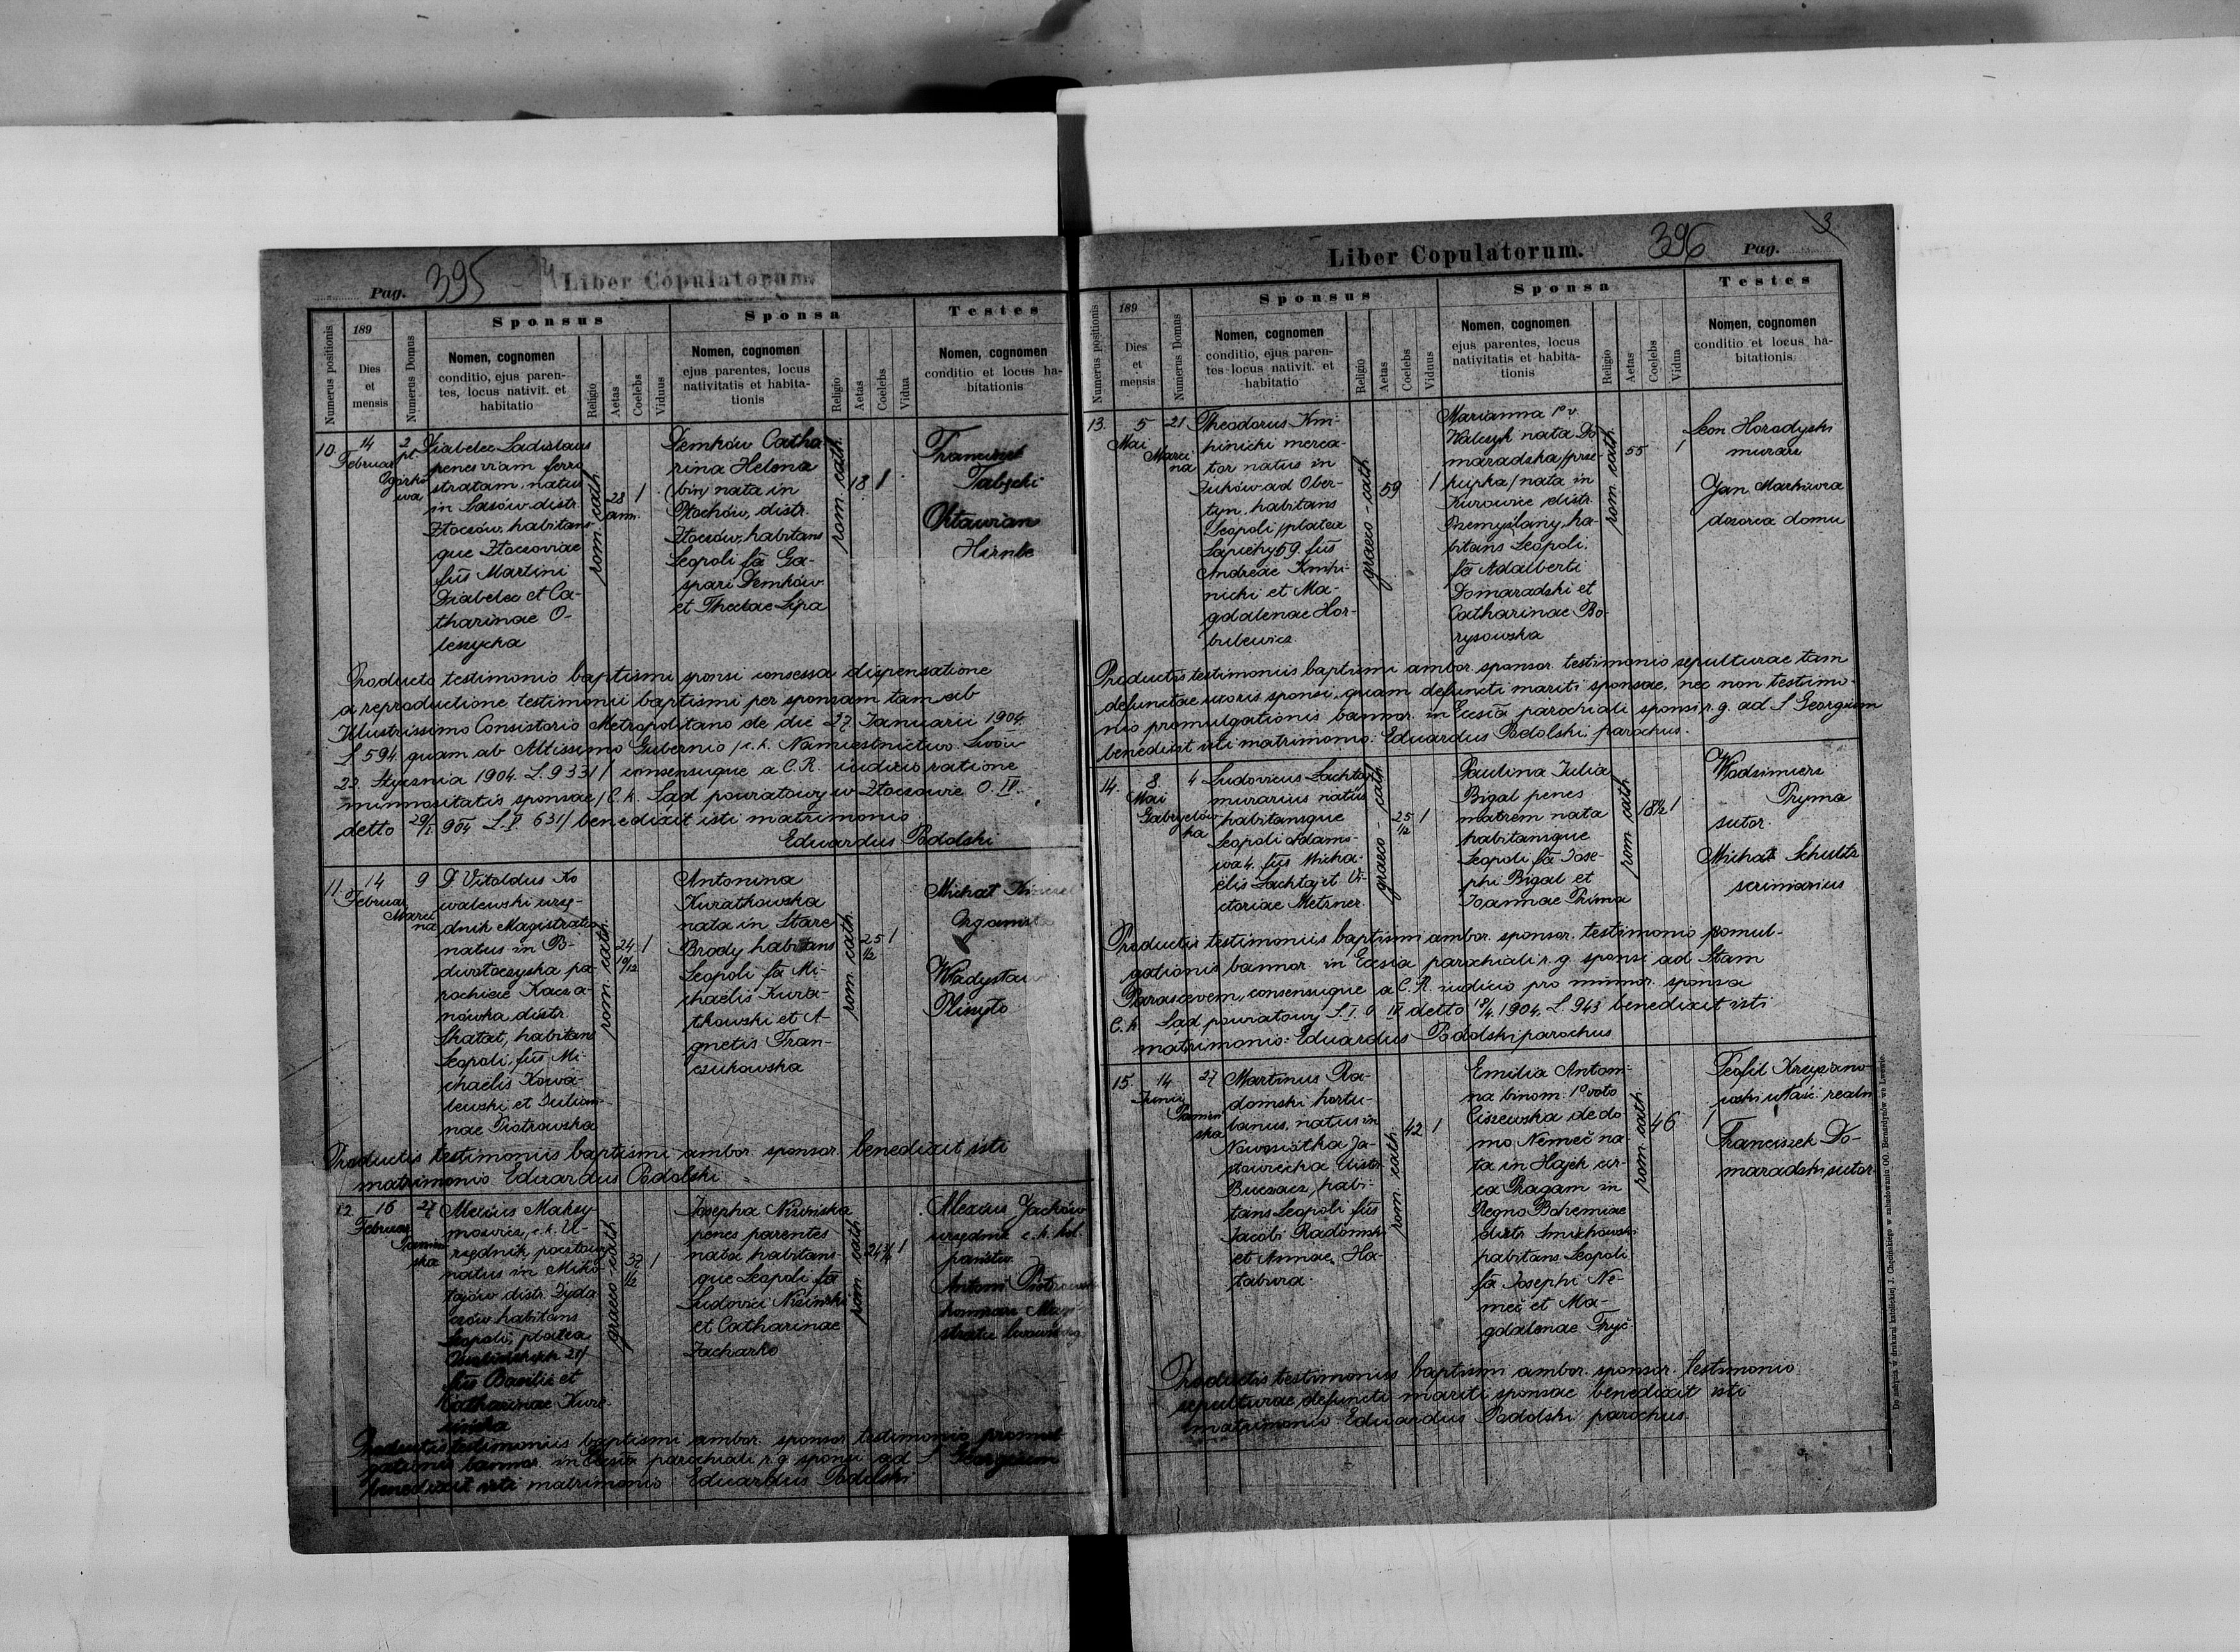 Pag. 395
Liber Copulatorum.
Numerus positionis
189
Dies
et
mensis
Numerus Domus
Sponsus
Nomen, cognomen
conditio, ejus paren-
tes, locus nativit. et
habitatio
Religio
Aetas
Coelebs
Viduus
Sponsa
Nomen, cognomen
ejus parentes, locus
nativitatis et habita-
tionis
Religio
Aetas
Coelebs
Vidua
Testes
Nomen, cognomen
conditio et locus ha-
bitationis
10.
14
Februar
2
pl.
Diabelec Ladislaus
penes viam ferri
stratam, natus
in Sasów distr.
Złoczów, habitans
que Złocsoviae
fīus Martini
Diabelec et Ca-
tharinae O-
leszycka
rom. cath.
28
ann.
1
Demków Catha
rina Helena
(bin) nata in
Płochów, distr.
Złoczów, habitans
Leopoli fā Ga-
spari Demków
et Theclae Lipa
rom. cath.
18
1
Franciszek
Oktawian
Producto testimonio baptismi sponsi consessa dispensatione
a reproductione testimonii baptismi per sponsam tam ab
Illustrissimo Consistorio Metropolitano de die 27 Januarii 1904
L 594 quam ab Altissimo Gubernio /c.k. Namiestnictwo Lwów
23. Stycznia 1904. L. 9331/ consensuque a C.R. iudicio ratione
minnositatis sponsae /C. k. Sąd powiatowy w Złoczowie O. IV.
detto 29/I 904 L. I 631/ benedixit isti matrimonio
Eduardus Podolski
11.
14
Februar
9
Marci
na
D. Vitoldus Ko
walewski urzę-
dnik Magistratu
natus in P-
dwołoczyska pa
rochiae Kacza-
nówka distr.
Skałat, habitans
Leopoli, fīus Mi-
chaëlis Kowa-
lewski et Julian-
nae Piotrowska
rom cath.
24
10/12
1
Antonina
Kuratkowska
nata in Stare
Brody habitans
Leopoli fā Mi-
chaëlis Kura-
tkowski et A-
gnetis Fran-
czukowska
rom. cath.
25
1/2
1
Michał
Organista
Władysław
Productis testimoniis baptismi ambor. sponsor. benedixit isti
matrimonio Eduardus Podolski
12
16
Februar
27
Alexius Maksy-
mowicz, c.k. U-
rzędnik pocztowy
natus in Miko
łajów distr. Żyda
czów habitans
Leopoli, platea
fīus Basilii et
Catharinae
graeco cath
32
1/2
1
Josepha Nizińska
penes parentes
nata habitans-
que Leopoli fā
Ludovici Niziński
et Catharinae
Zacharko
rom cath
24
1
Alexius Jacków
urzędnik c. k. kol.
państw.
Antoni
Productis testimoniis baptismi ambor. sponsor testimonio promul
gationis bannor. in Ecesia parochiali r. g. sponsi ad S Georgium
benedixit isti matrimonio: Eduardus Podolski
Liber Copulatorum.
396
Pag.
3
Numerus positionis
189
Dies
et
mensis
Numerus Domus
Sponsus
Nomen, cognomen
conditio, ejus paren-
tes locus nativit. et
habitatio
Religio
Aetas
Coelebs
Viduus
Sponsa
Nomen, cognomen
ejus parentes, locus
nativitatis et habita-
tionis
Religio
Aetas
Coelebs
Vidua
Testes
Nomen, cognomen
conditio et locus ha-
bitationis
13.
5
Mai
21
Marci
na
Theodorus Kmi-
hinicki merca-
tor natus in
Żuków ad Ober-
tyn, habitans
Leopoli /platea
Sapiehy 59. fīus
Andreae Kmihi-
nicki et Ma-
gdalenae Hor-
bulewicz.
graeco-cath
59
1
Marianna 1º v.
Walczyk nata Do
maradzka /prze-
kupka/ nata in
Kurowice distr.
Przemyślany, ha-
bitans Leopoli.
fā Adalberti
Domaradzki et
Catharinae Bo-
rysowska
rom. cath.
55
1
Leon Horodyski
murarz
Jan Markiwcza
dozorca domu
Productis testimoniis baptismi ambor. sponsor. testimonio sepulturae tam
defunctae uxoris sponsi, quam defuncti mariti sponsae, nec non testimo-
nio promulgationis bannor. in Ecesiā parochiali sponsi r.g. ad S Georgium
benedixit isti matrimonio: Eduardus Podolski, parochus.
14.
8.
Mai
Gabryelów
ka
4
Ludovicus Lachtaj
murarius natus
habitansque
Leopoli Adams-
wa 4. fīus Micha-
ëlis Lachtaj et Vi-
ctoriae Metzner.
graeco - cath
25
1/2
1
Paulina Julia
Bigal penes
matrem nata
habitansque
Leopoli fā Jose-
phi Bigal et
Joannae Prima
rom cath
18 1/2
1
Wadzimierz
Pryma
sutor.
Michał Schultz
scriniarius
Productis testimoniis baptismi ambor. sponsor. testimonio promul-
gationis bannor. in Ecesia parochiali r. g. sponsi ad Stam
Parascevem, consensuque a C. R. iudicio pro minor. sponsa
C. k. Sąd powiatowy S. I. O IV detto 18/4. 1904. L 943 benedixit isti
matrimonio: Eduardus Podolski parochus
15.
14
Junii
27
Martinus Ra-
domski hortu-
lanus, natus in
Nowosiółka Ja-
złowiecka distr
Buczacz, habi-
tans Leopoli fīus
Jacobi Radomski
et Annae Ha-
łabura.
rom. cath.
42
1
Emilia Anton-
na binom. 1º voto
Ciszewska de do
mo Nemeč na-
ta in Hajek cir-
ca Pragam in
Regno Bohemiae
distr Smichowski
habitans Leopoli
fā Josephi Ne-
meč et Ma-
gdalenae Fryč
rom cath.
46
1
Teofil Krzyżano-
wski właść. realn.
Franciszek Do-
maradzki, sutor
Productis testimoniis baptismi ambor. sponsor. testimonio
sepulturae defuncti mariti sponsae benedixit isti
matrimonio Eduardus Podolski parochus.
Do nabycia w drukarni katolickiej J. Chęcińskiego w zabudowaniu OO. Bernardynów we Lwowie.